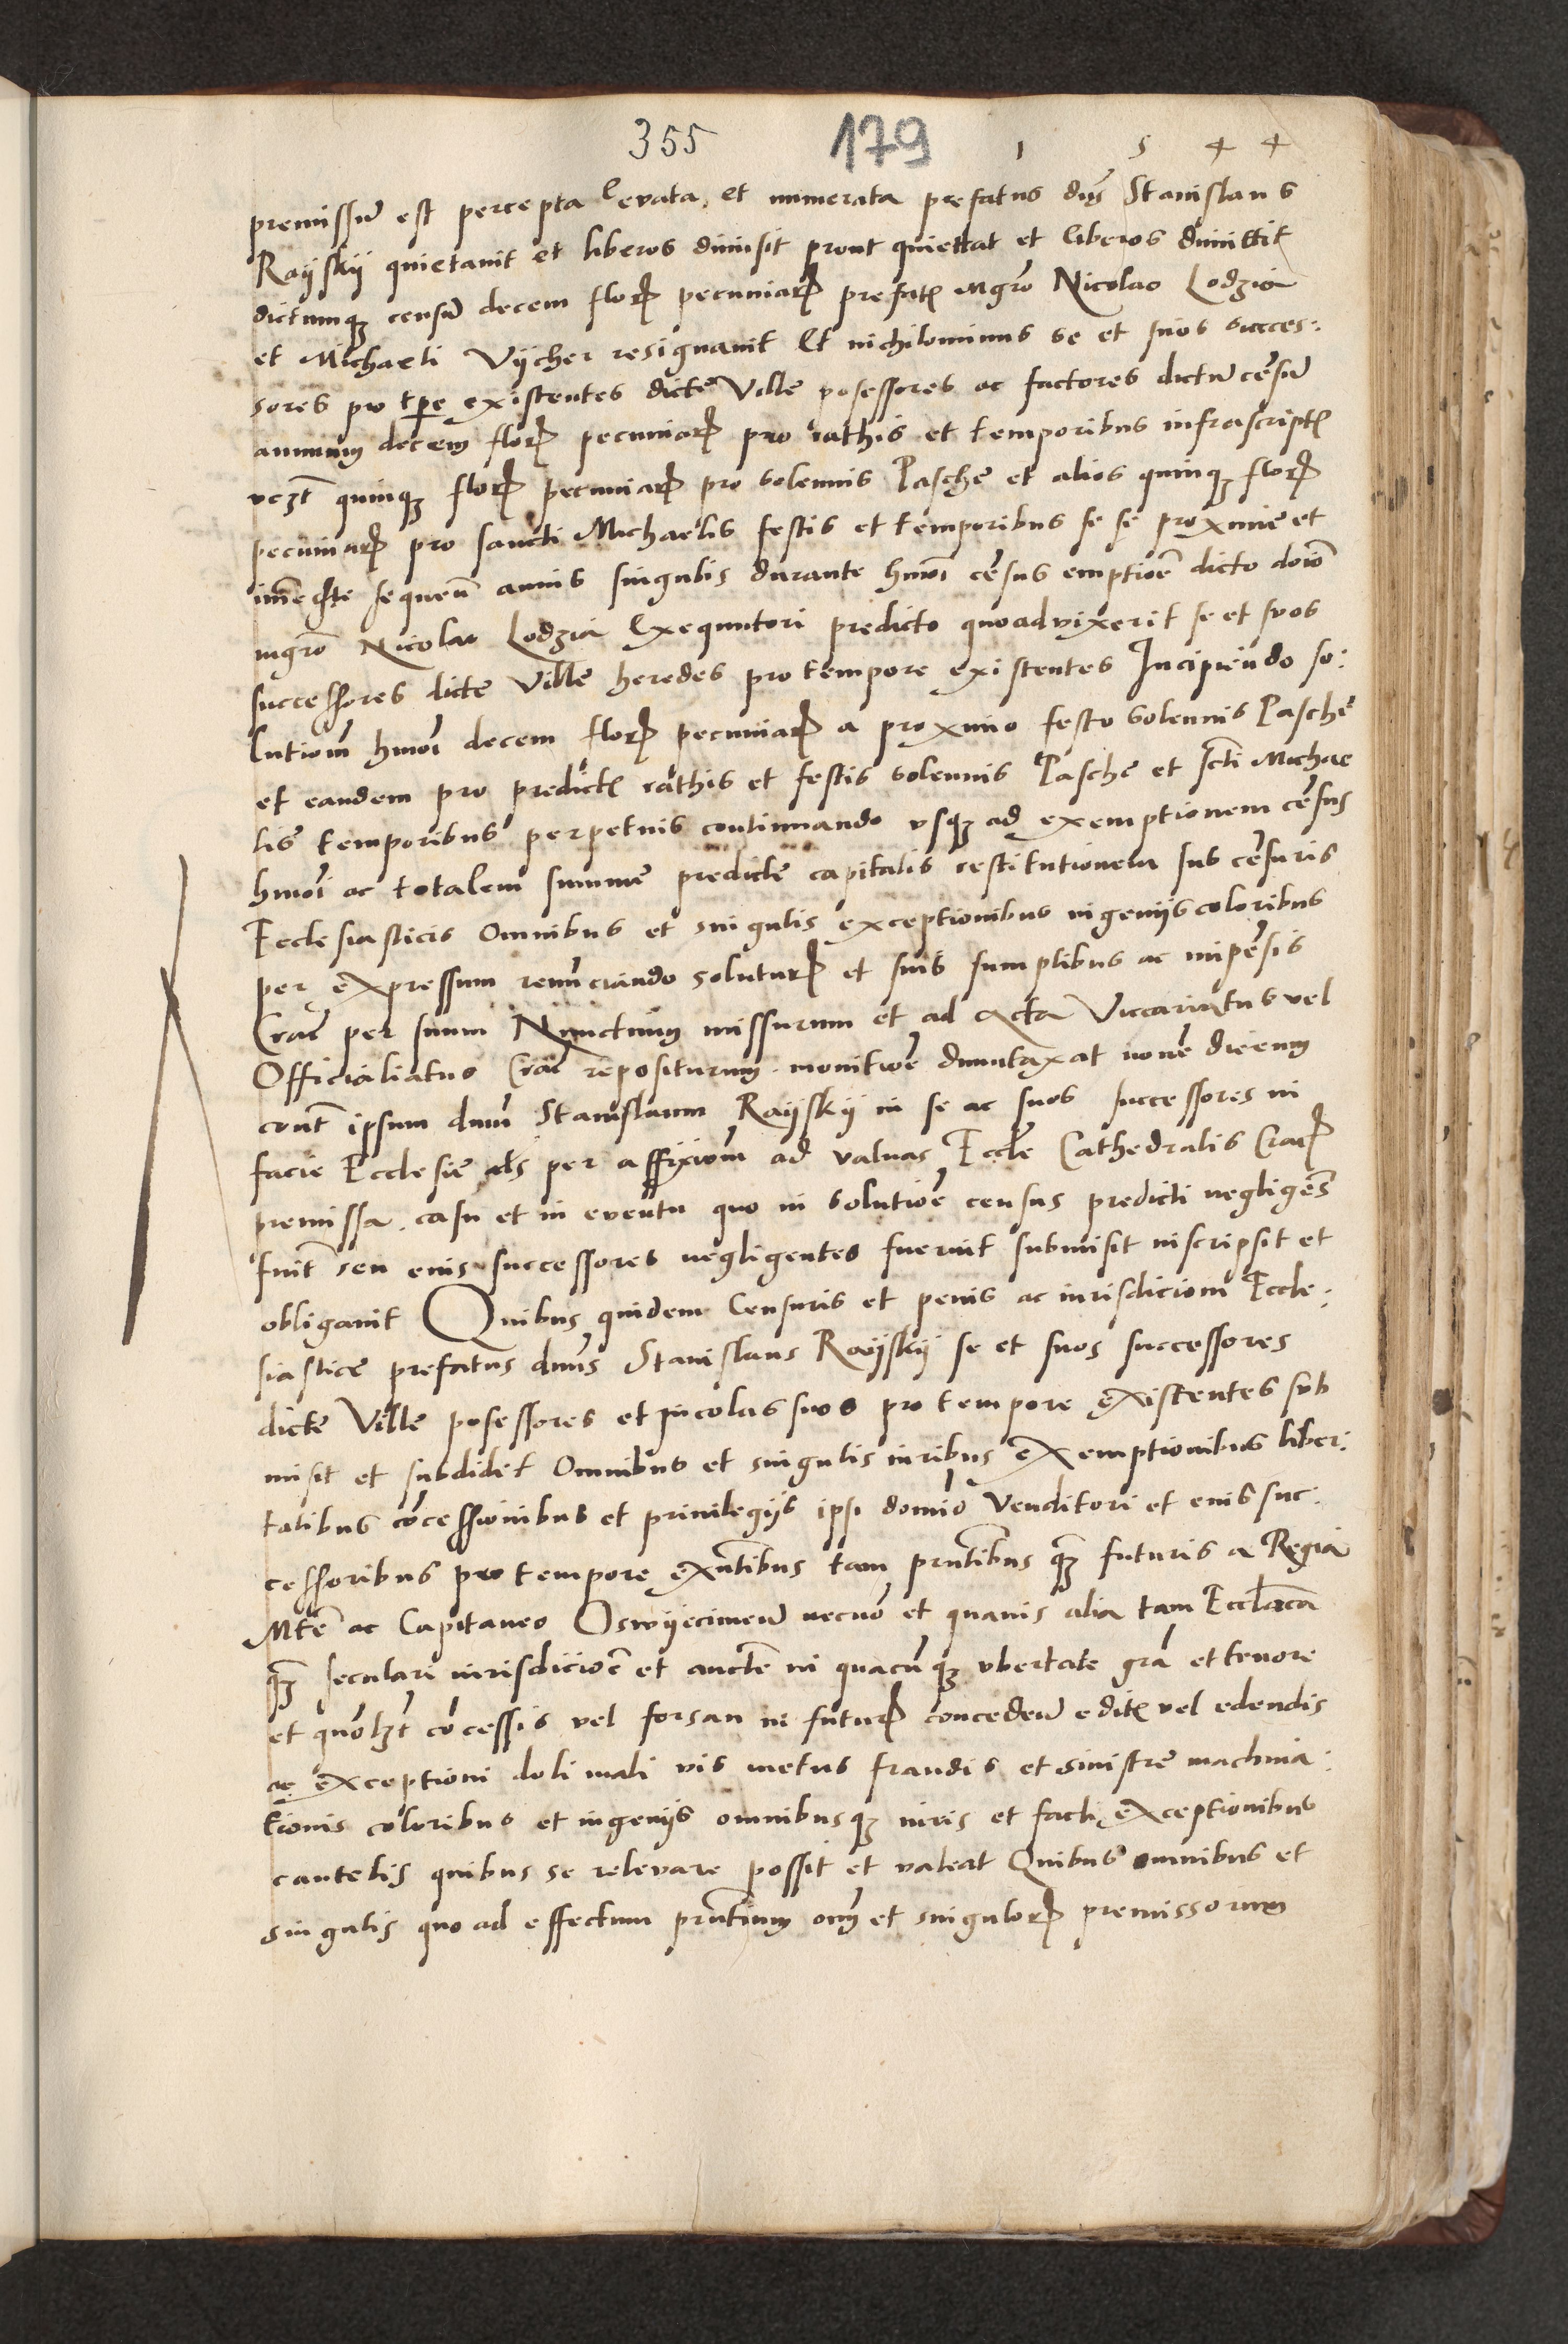 355 179 1 5 4 4
premissũ est percepta levata et numerata prefatus dñs Stanislaus
Rayskij quietauit et liberos dimisit prout quiettat et liberos dimittit
dictumqꝫ censũ decem floꝝ pecuniaꝝ prefatꝭ Mgrõ Nicolao Lodzia
et Michaeli Vijcher resignauit Et nichilominus se et suos succes:
sores pro tꝑe existentes dicte Ville posessores ac factores dictũ cẽsũ
annuum decem floꝝ pecuniaꝝ pro rathis et temporibus infrascriptꝭ
vꝫt quinqꝫ floꝝ pecuniaꝝ pro solennis Pasche et alios quinqꝫ floꝝ
pecuniaꝝ pro sancti Michaelis festis et temporibus se se proxime et
sequeñ annis singulis durante hmõi cẽsus emptiõe dicto doiõ
mgrõ Nicolao Lodzia Exequutori predicto quoad vixerit se et suos
successores dicte Ville heredes pro tempore existentes Incipiendo so:
lutiom̃ hmõi decem floꝝ pecuniaꝝ a proximo festo solennis Pasche
et eandem pro predictꝭ rathis et festis solennis Pasche et scti Michae
lis temporibus perpetuis continuando vsqꝫ ad exemptionem cẽsus
hmõi ac totalem summe predicte capitalis restitutionem sub cẽsuris
Ecclesiasticis Omnibus et singulis exceptionibus ingenijs coloribus
per expressum renũciando soluturꝝ et suis sumptibus ac impẽsis
Crac̃ per suum Nunctium missurum et ad Acta Viccariatus vel
Officialiatus Crac̃ repositurum monitiõe dumtaxat noue dierum
cont̃ ipsum dnm̃ Stanislaum Rayskij in se ac suos successores in
facie Ecclesie als per affixiom̃ ad valuas Eccle Cathedralis Cracꝝ
premissa casu et in euentu quo in solutiõe census predicti negligẽs
fuit̃ seu eius successores negligentes fuerint submisit inscripsit et
obligauit Quibus quidem Censuris et penis ac iurisdicioni Eccle:
siastice prefatus dnus Stanislaus Rayskij se et suos successores
dicte Ville posessores et Incolas suos pro tempore existentes sub
misit et subdidit Omnibus et singulis iuribus exemptionibus liber:
tatibus cõcessionibus et priuilegijs ipsi domiõ Venditori et eius suc:
cessoribus pro tempore exñtibus tam prñtibus qꝫ futuris a Regia
Mte ac Capitaneo Oswyecimeñ necnõ et quauis alia tam Ecclãcã
qꝫ seculari iurisdiciõe et aucte in quacũqꝫ vbertate grã et tenore
et quõlꝫt cõcessis vel forsan in futurꝝ concedeñ editꝭ vel edendis
ac exceptioni doli mali vis metus fraudis et sinistre machina:
tionis coloribus et ingenijs omnibusqꝫ iuris et facti exceptionibus
cautelis quibus se relevare possit et valeat Quibus omnibus et
singulis quo ad effectum prñtium om̃ et singuloꝝ premissorum